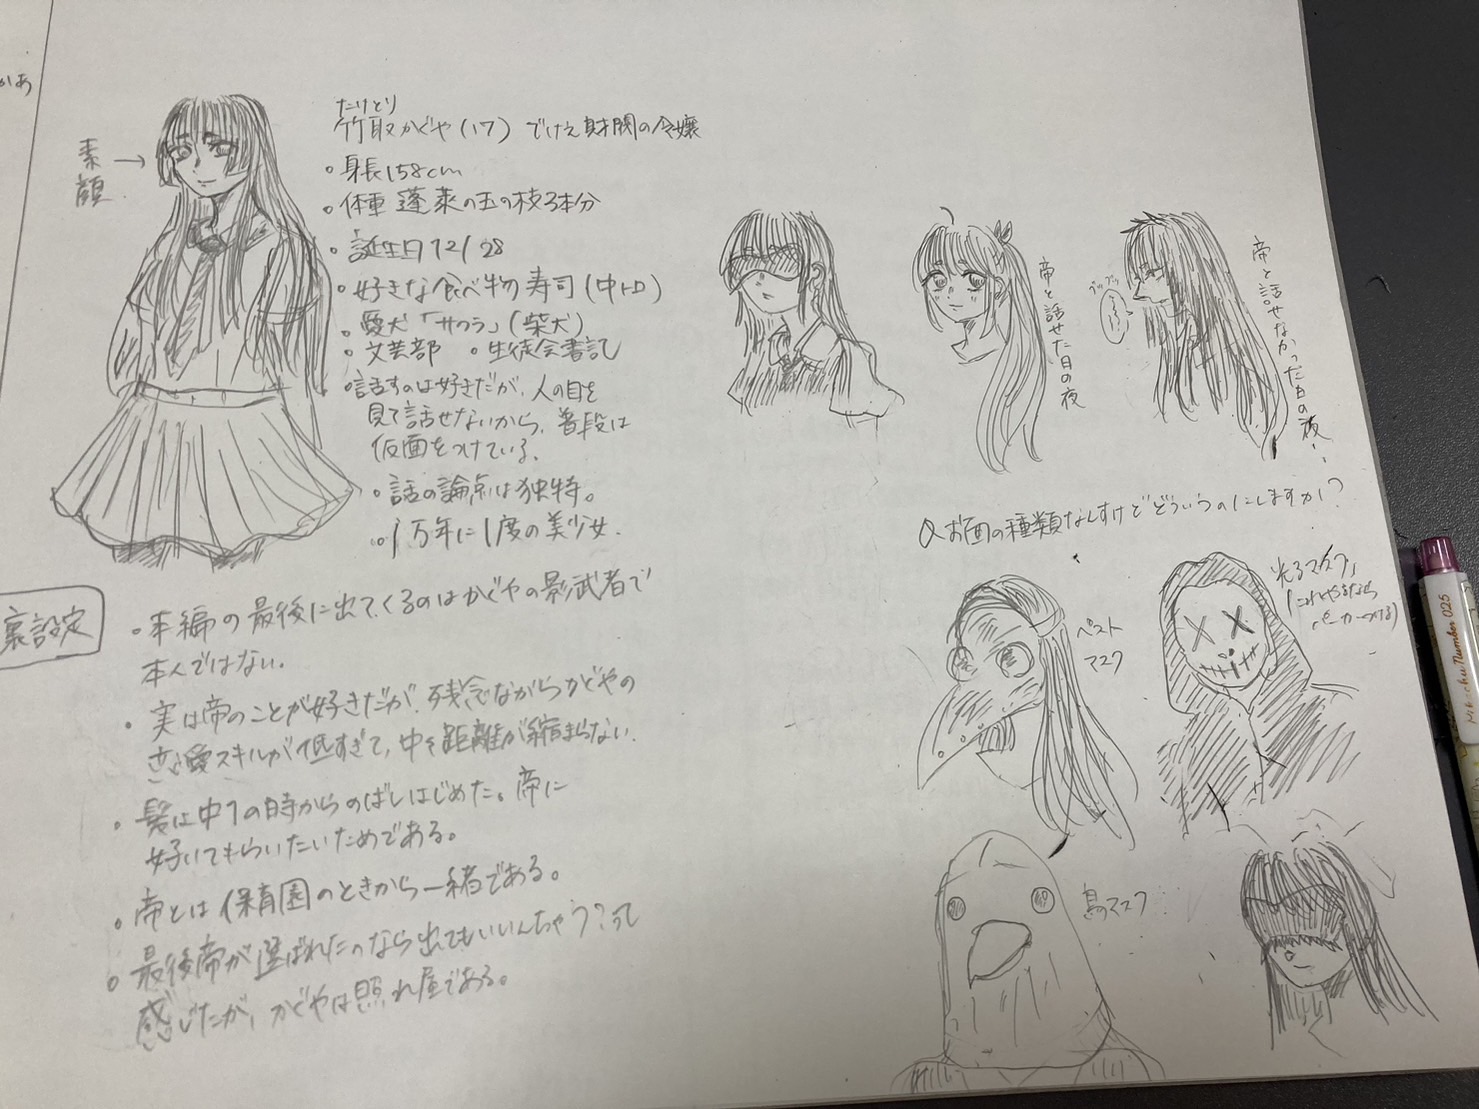 かあ
素顔→
たけとり
竹取かぐや(17) でけえ財閥の令嬢
・身長158cm
・体重 蓬莱の玉の枝3本分
・誕生日12/28
・好きな食べ物 寿司(中トロ)
・愛犬「サクラ」(柴犬)
・文芸部 ・生徒会書記
・話すのは好きだが、人の目を
見て話せないから、普段は
仮面をつけている。
・話の論点は独特。
・1万年に1度の美少女.
裏設定
・本編の最後に出てくるのはかぐやの影武者で
本人ではない。
・実は帝のことが好きだが、残念ながらかぐやの
恋愛スキルが低すぎて、中々距離が縮まらない.
・髪は中1の時からのばしはじめた。帝に
好いてもらいたいためである。
・帝とは保育園のときから一緒である。
・最後帝が選ばれたのなら出てもいいんちゃう?って
感じたが、かぐやは照れ屋である。
帝と話せた日の夜
帝と話せなかった日の夜…
ブツブツ
Qお面の種類なんすけどどういうのにしますか?
ペスト
マスク
光るマスク
鳥マスク
Mikechu Number 025